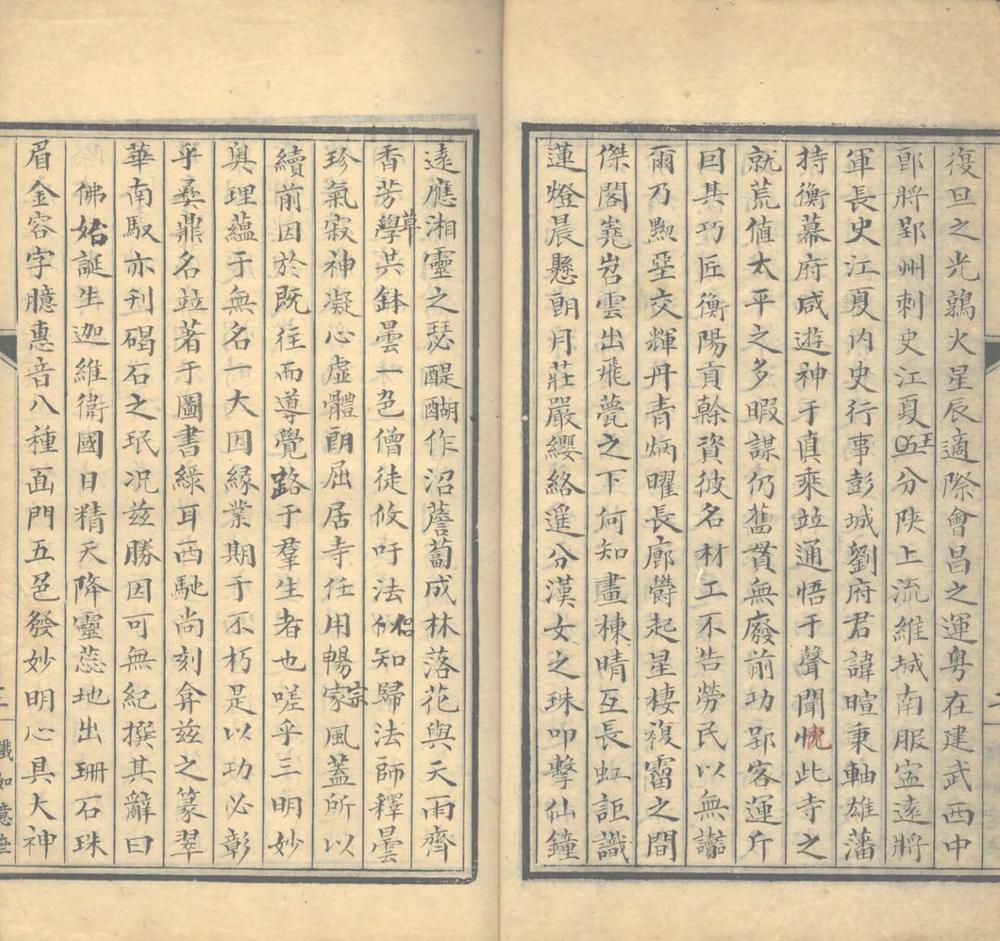 復旦之光鶉火星辰適際會昌之運粵在建武西中
郎將郢州刺史江夏王分陝上流維城南服寍遠將
軍長史江夏內史行事彭城劉府君諱暄秉軸雄藩
持衡幕府咸遊神于真乘竝通悟于聲聞怳此寺之
就荒值太平之多暇謀仍舊貫無廢前功郢客運斤
囙其巧匠衡陽貢榦資彼名材工不告勞民以無讟
爾乃黝堊交輝丹青炳曜長廊欝起星棲複霤之間
傑閣嶤岧雲出飛甍之下何知畫棟晴互長虹詎識
蓮燈晨懸朗月莊嚴纓絡遙分漢女之珠叩擊仙鐘
遠應湘靈之瑟醍醐作沼薝蔔成林落花與天雨齊
香芳草共鉢曇一色僧徒攸吁法侶知歸法師釋曇
珍氣寂神凝心虛體朗屈居寺任用暢宗風蓋所以
續前因於既往而導覺路于羣生者也嗟乎三明妙
奧理蘊于無名一大因緣業期于不朽是以功必彰
乎彝鼎名竝著于圖書綠耳西馳尚刻弇茲之篆翠
華南馭亦刊碣石之珉况茲勝因可無紀撰其辭曰
佛始誕生迦維衛國日精天降靈蕊地出珊石珠
眉金容字臆惠音八種面門五色發妙明心具大神
二
三
如意